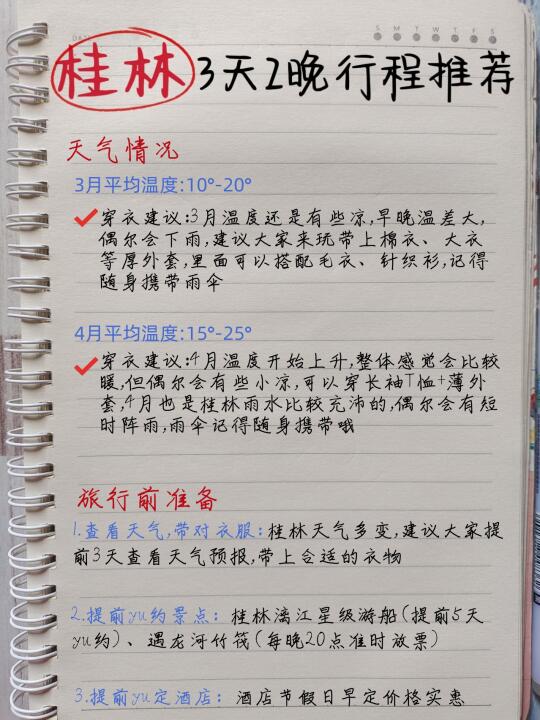 S M T W T F S
桂林3天2晚行程推荐
天气情况
3月平均温度:10°-20°
穿衣建议:3月温度还是有些凉,早晚温差大,
偶尔会下雨,建议大家来玩带上棉衣、大衣
等厚外套,里面可以搭配毛衣、针织衫,记得
随身携带雨伞
4月平均温度:15°-25°
穿衣建议:4月温度开始上升,整体感觉会比较
暖,但偶尔会有些小凉,可以穿长袖T恤+薄外
套,4月也是桂林雨水比较充沛的,偶尔会有短
时阵雨,雨伞记得随身携带哦
旅行前准备
1.查看天气,带对衣服:桂林天气多变,建议大家提
前3天查看天气预报,带上合适的衣物
2.提前yu约景点:桂林漓江星级游船(提前5天
yu约)、遇龙河竹筏(每晚20点准时放票)
3.提前yu定酒店:酒店节假日早定价格实惠